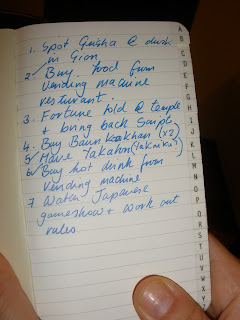 1. Spot Geisha @ dusk
in Gion
2. Buy food from
vending machine
resturant.
3. Fortune told @ temple
+ bring back
4. Buy Baum (x2)
5. Have Yakatori (Yakiniku?)
6. Buy hot drink from
vending machine
7 Watch Japanese
gameshow + work out
rules
A
B
C
D
E
F
G
H
I
J
K
L
M
N
O
P
Q
R
S
T
U
V
W
X
Y
Z